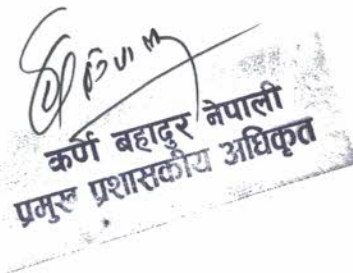 कर्ण बहादुर नेपाली
प्रमुख प्रशासकीय अधिकृत